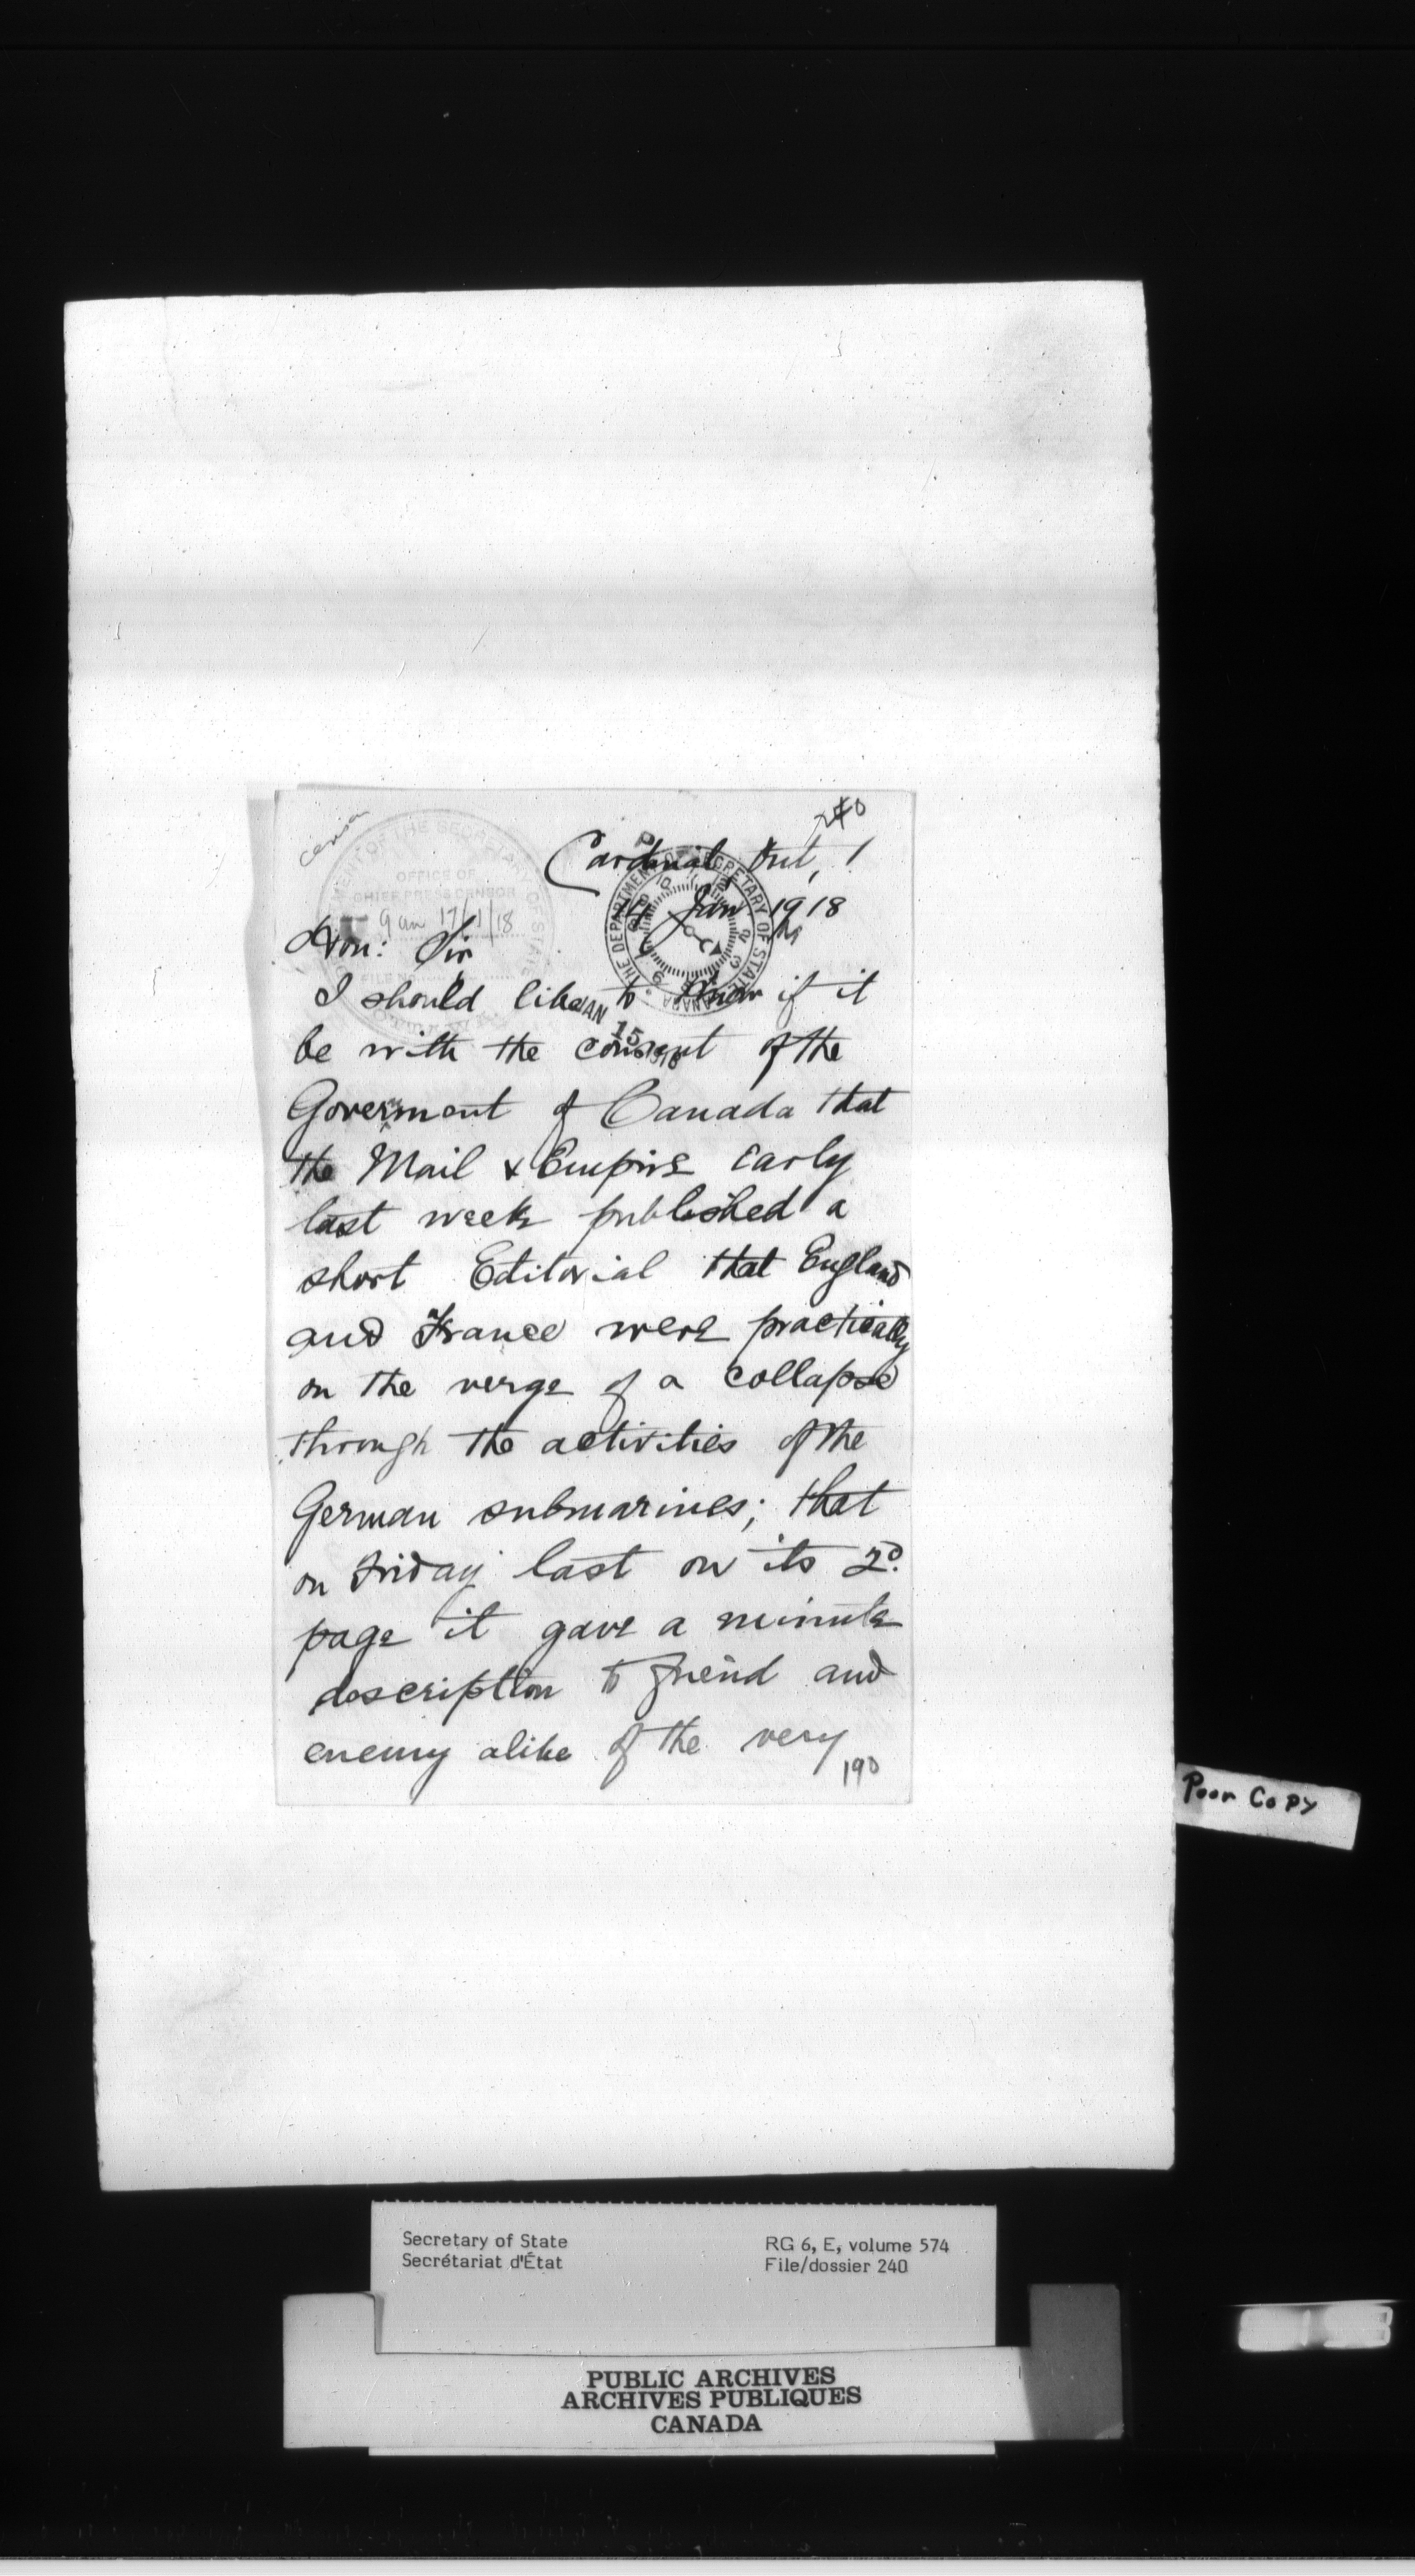 240
Censor
DEPARTMENT OF THE SECRETARY OF STATE
OFFICE OF
CHIEF PRESS CENSOR
17/1/18
FILE No.
THE DEPARTMENT OF SECRETARY OF STATE
CANADA
JAN 15 1918
Cardinal Ont, 1
14 Jan 1918
Hon: Sir
I should like to know if it
be with the consent of the
Goverment of Canada that
the Mail & Empire early
last week published a
short Editorial that England
and France were practically
on the verge of a collapse
through the activities of the
German submarines; that
on Friday last on its 2d.
page it gave a minute
description to friend and
enemy alike of the very
190
Poor Copy
Secretary of State
Secrétariat d'État
RG 6, E, volume 574
File/dossier 240
PUBLIC ARCHIVES
ARCHIVES PUBLIQUES
CANADA